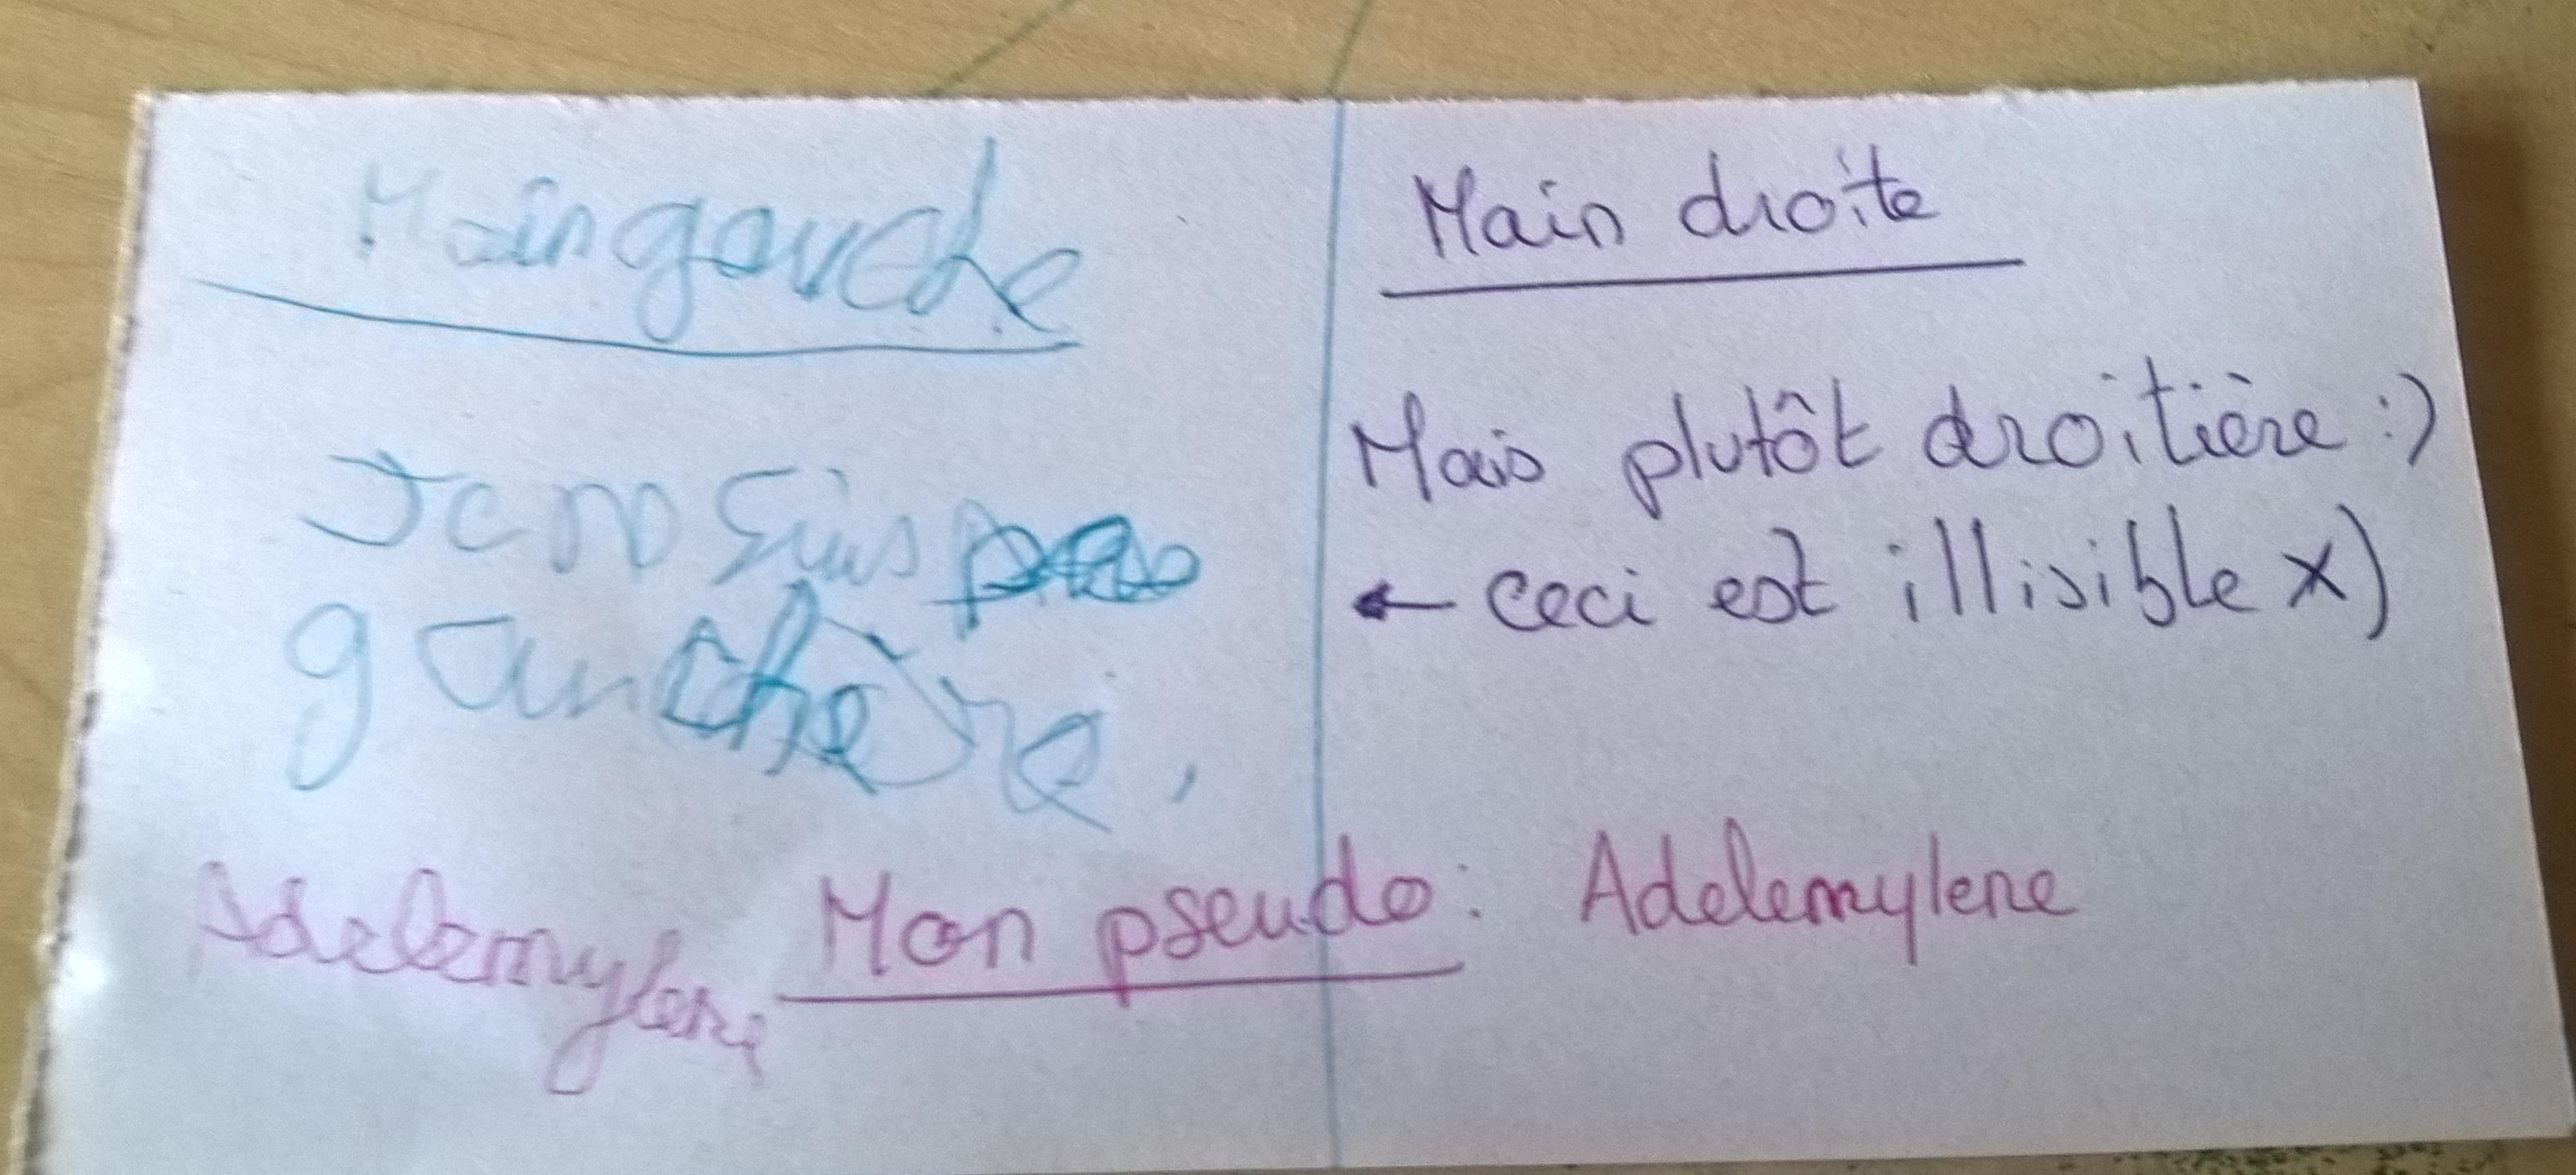 Main gauche
Je ne suis pas
gauchère,
Main droite
Mais plutôt droitière :)
← ceci est illisible x)
Adelemylene Mon pseudo : Adelemylene